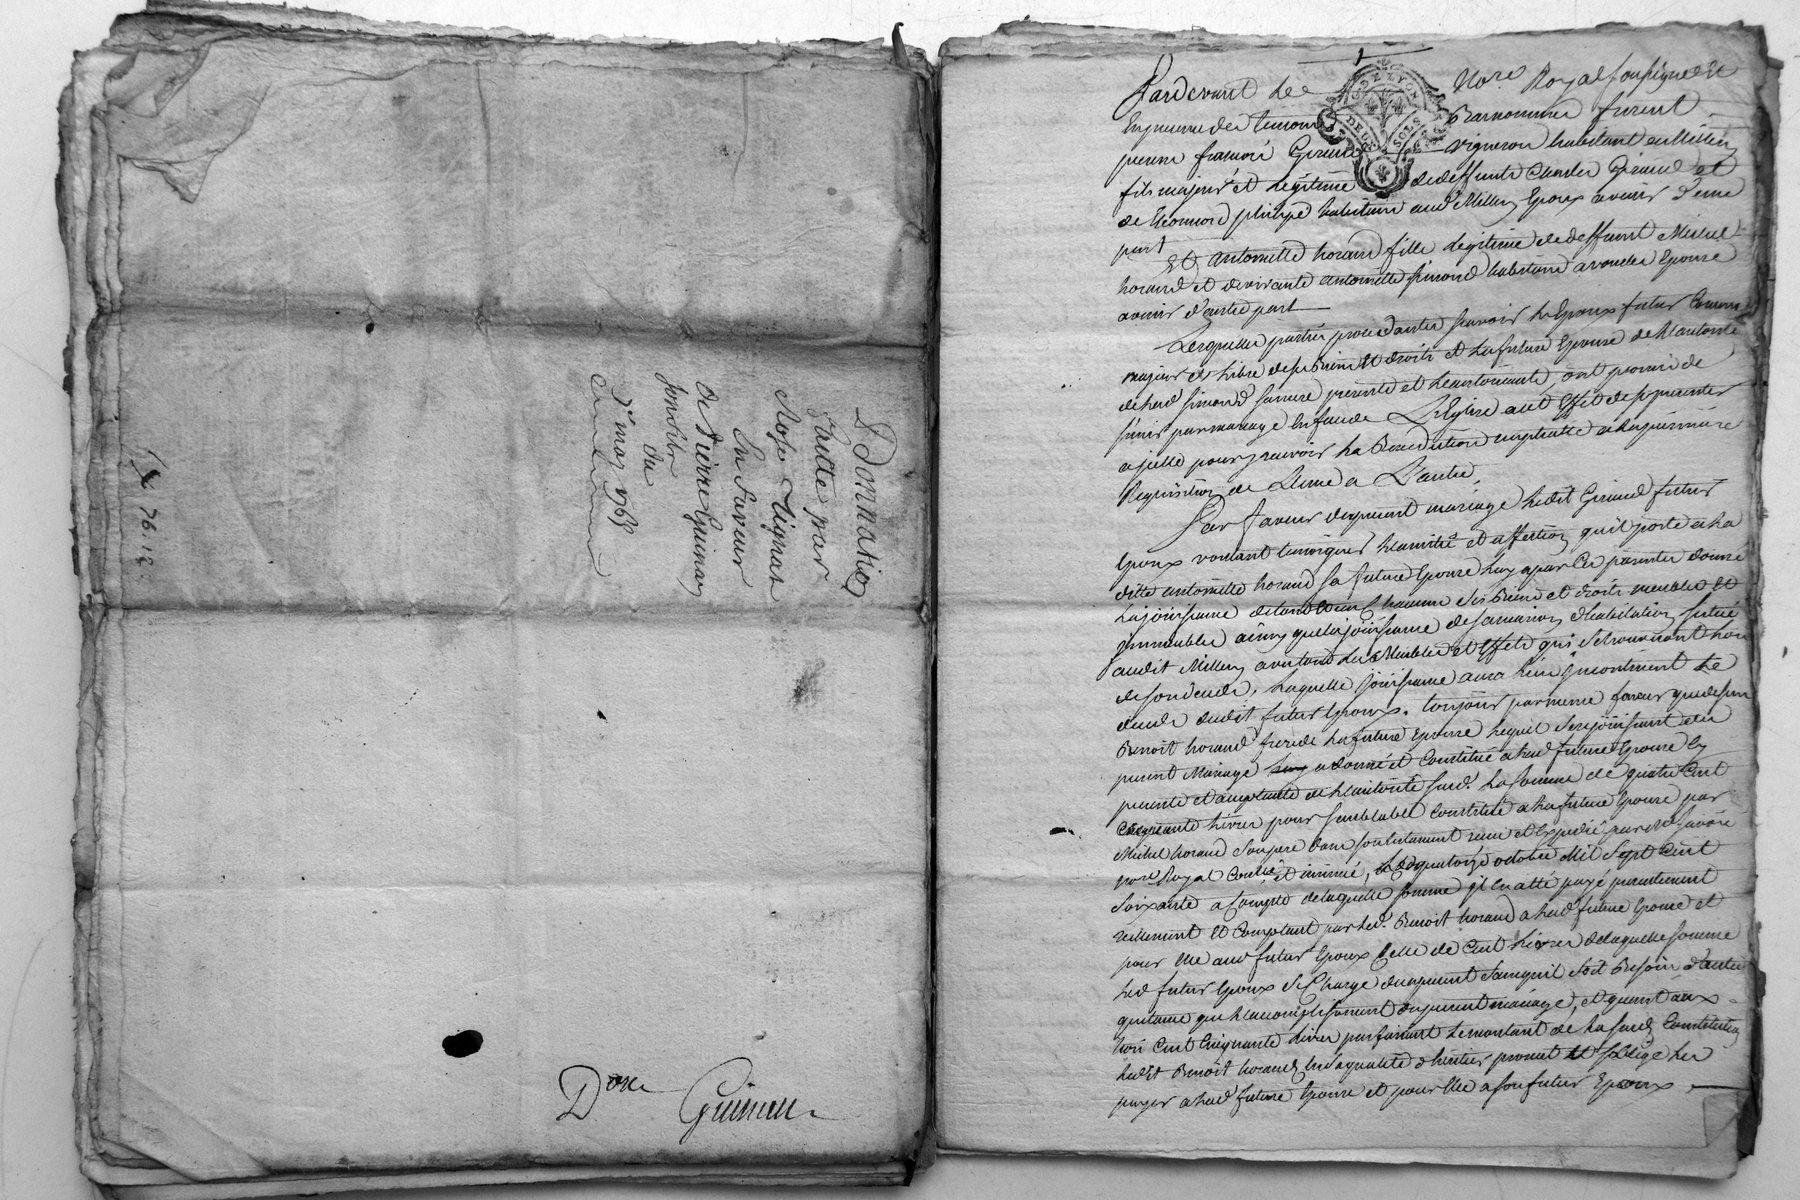 Donnation
faitte par
En faveur
de Pierre Guinan
du
7 mars 1768
Don Guinan
GDE LYON
DEUX SOLS
Pardevant Le Nore Royal soussigné Et
En presence des temoins Basnommés furent
pierre françois Giraud vigneron habitant au Millery
fils majeur et Legitime de deffunts Claude Giraud et
de Eleonord philipe habitant aud Millery Epoux avenir d'une
part
Et antoinette horand fille Legitime de deffunt Michel
horand et de vivante antoinette Simond habitante a vourles Epouse
avenir d'autre part
Lesquelles parties procedantes savoir Le Epoux futur Comme
majeur et Libre de ses Biens Et droits et La future Epouse de L'autorité
de lad Simond sa mere presente et L'autorisante, ont promis de
s'unir par mariage En face de L'Eglise a cet Effet de se presenter
a icelle pour y recevoir La Benediction nuptialle a La premiere
Requisition de L'une a L'autre,
Par faveur du present mariage Ledit Giraud futur
Epoux voulant temoigner L'amitié et affection qu'il porte a La
ditte antoinette horand sa future Epouse Luy a par Ces presentes donné
La jouissance de tous Et un Chacun ses Biens et droits meubles Et
immeubles ainsy que La jouissance de sa maison d'habitation située
audit Millery avec tous Les Meubles et Effets qui se trouveront Lors
de son decedes, Laquelle jouissance aura Lieu incontinent Le
decedes dudit futur Epoux. toujours par meme faveur que dessus
Benoit horand frere de La future Epouse Lequel se rejouissant du
present Mariage a donné et Constitué a Lad future Epouse Cy
presente et acceptante de L'autorité susd. La somme de quatre Cent
Cinquante Livres pour semblable Constitué a La future Epouse par
Michel horand son pere dans son testament reçu et Expedié par Me
nore Royal Controllé et insinué, Le quatorze octobre Mil Sept Cent
Soixante a Compte de laquelle somme il En a été payé presentement
reellement Et Comptant par led. Benoit horand a Lad future Epouse et
pour Elle aud futur Epoux Celle de Cent Livres de laquelle somme
Led futur Epoux se Charge du present sans qu'il soit Besoin d'autre
quittance que L'accomplissement du present mariage, et quant aux
trois Cent Cinquante Livres parfaisant Le montant de La susd Constitution
Ledit Benoit horand En sa qualité d'heritier promet Et s'oblige Les
payer a Lad future Epouse et pour Elle a son futur Epoux